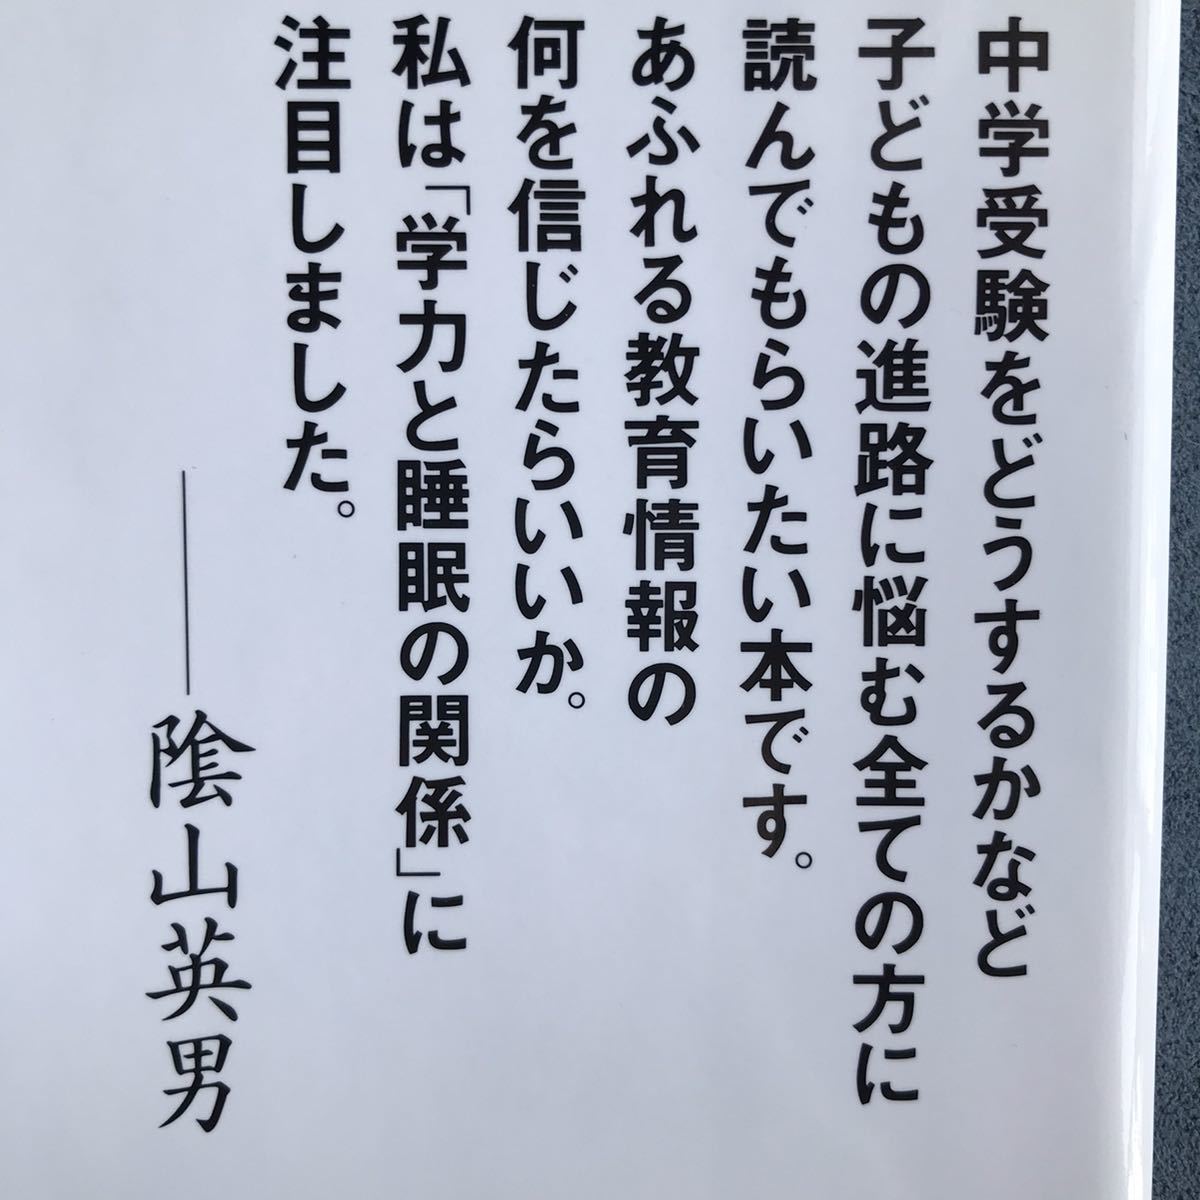 中学受験をどうするかなど
子どもの進路に悩む全ての方に
読んでもらいたい本です。
あふれる教育情報の
何を信じたらいいか。
私は「学力と睡眠の関係」に
注目しました。
──陰山英男